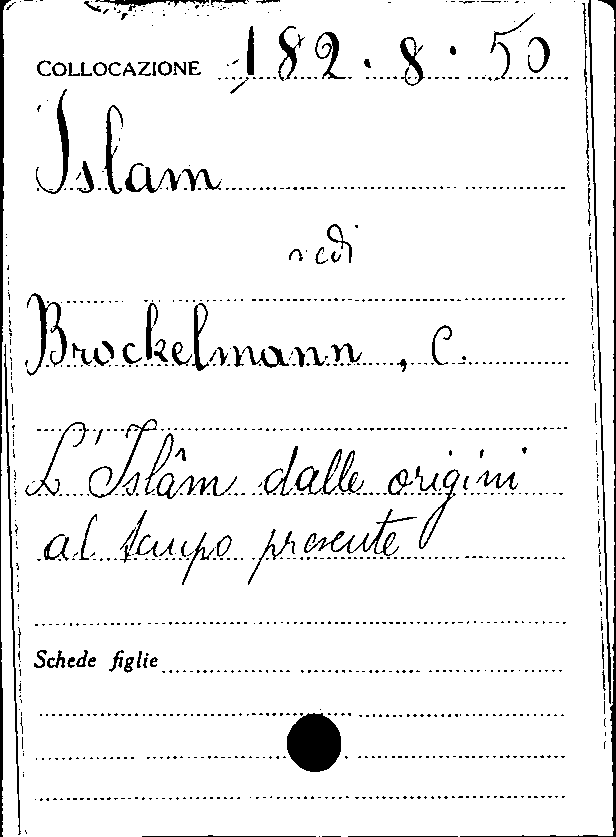 COLLOCAZIONE 182.8.50
Islam
vedi
Brockelmann, C.
L'Islâm dalle origini
al tempo presente
Schede figlie